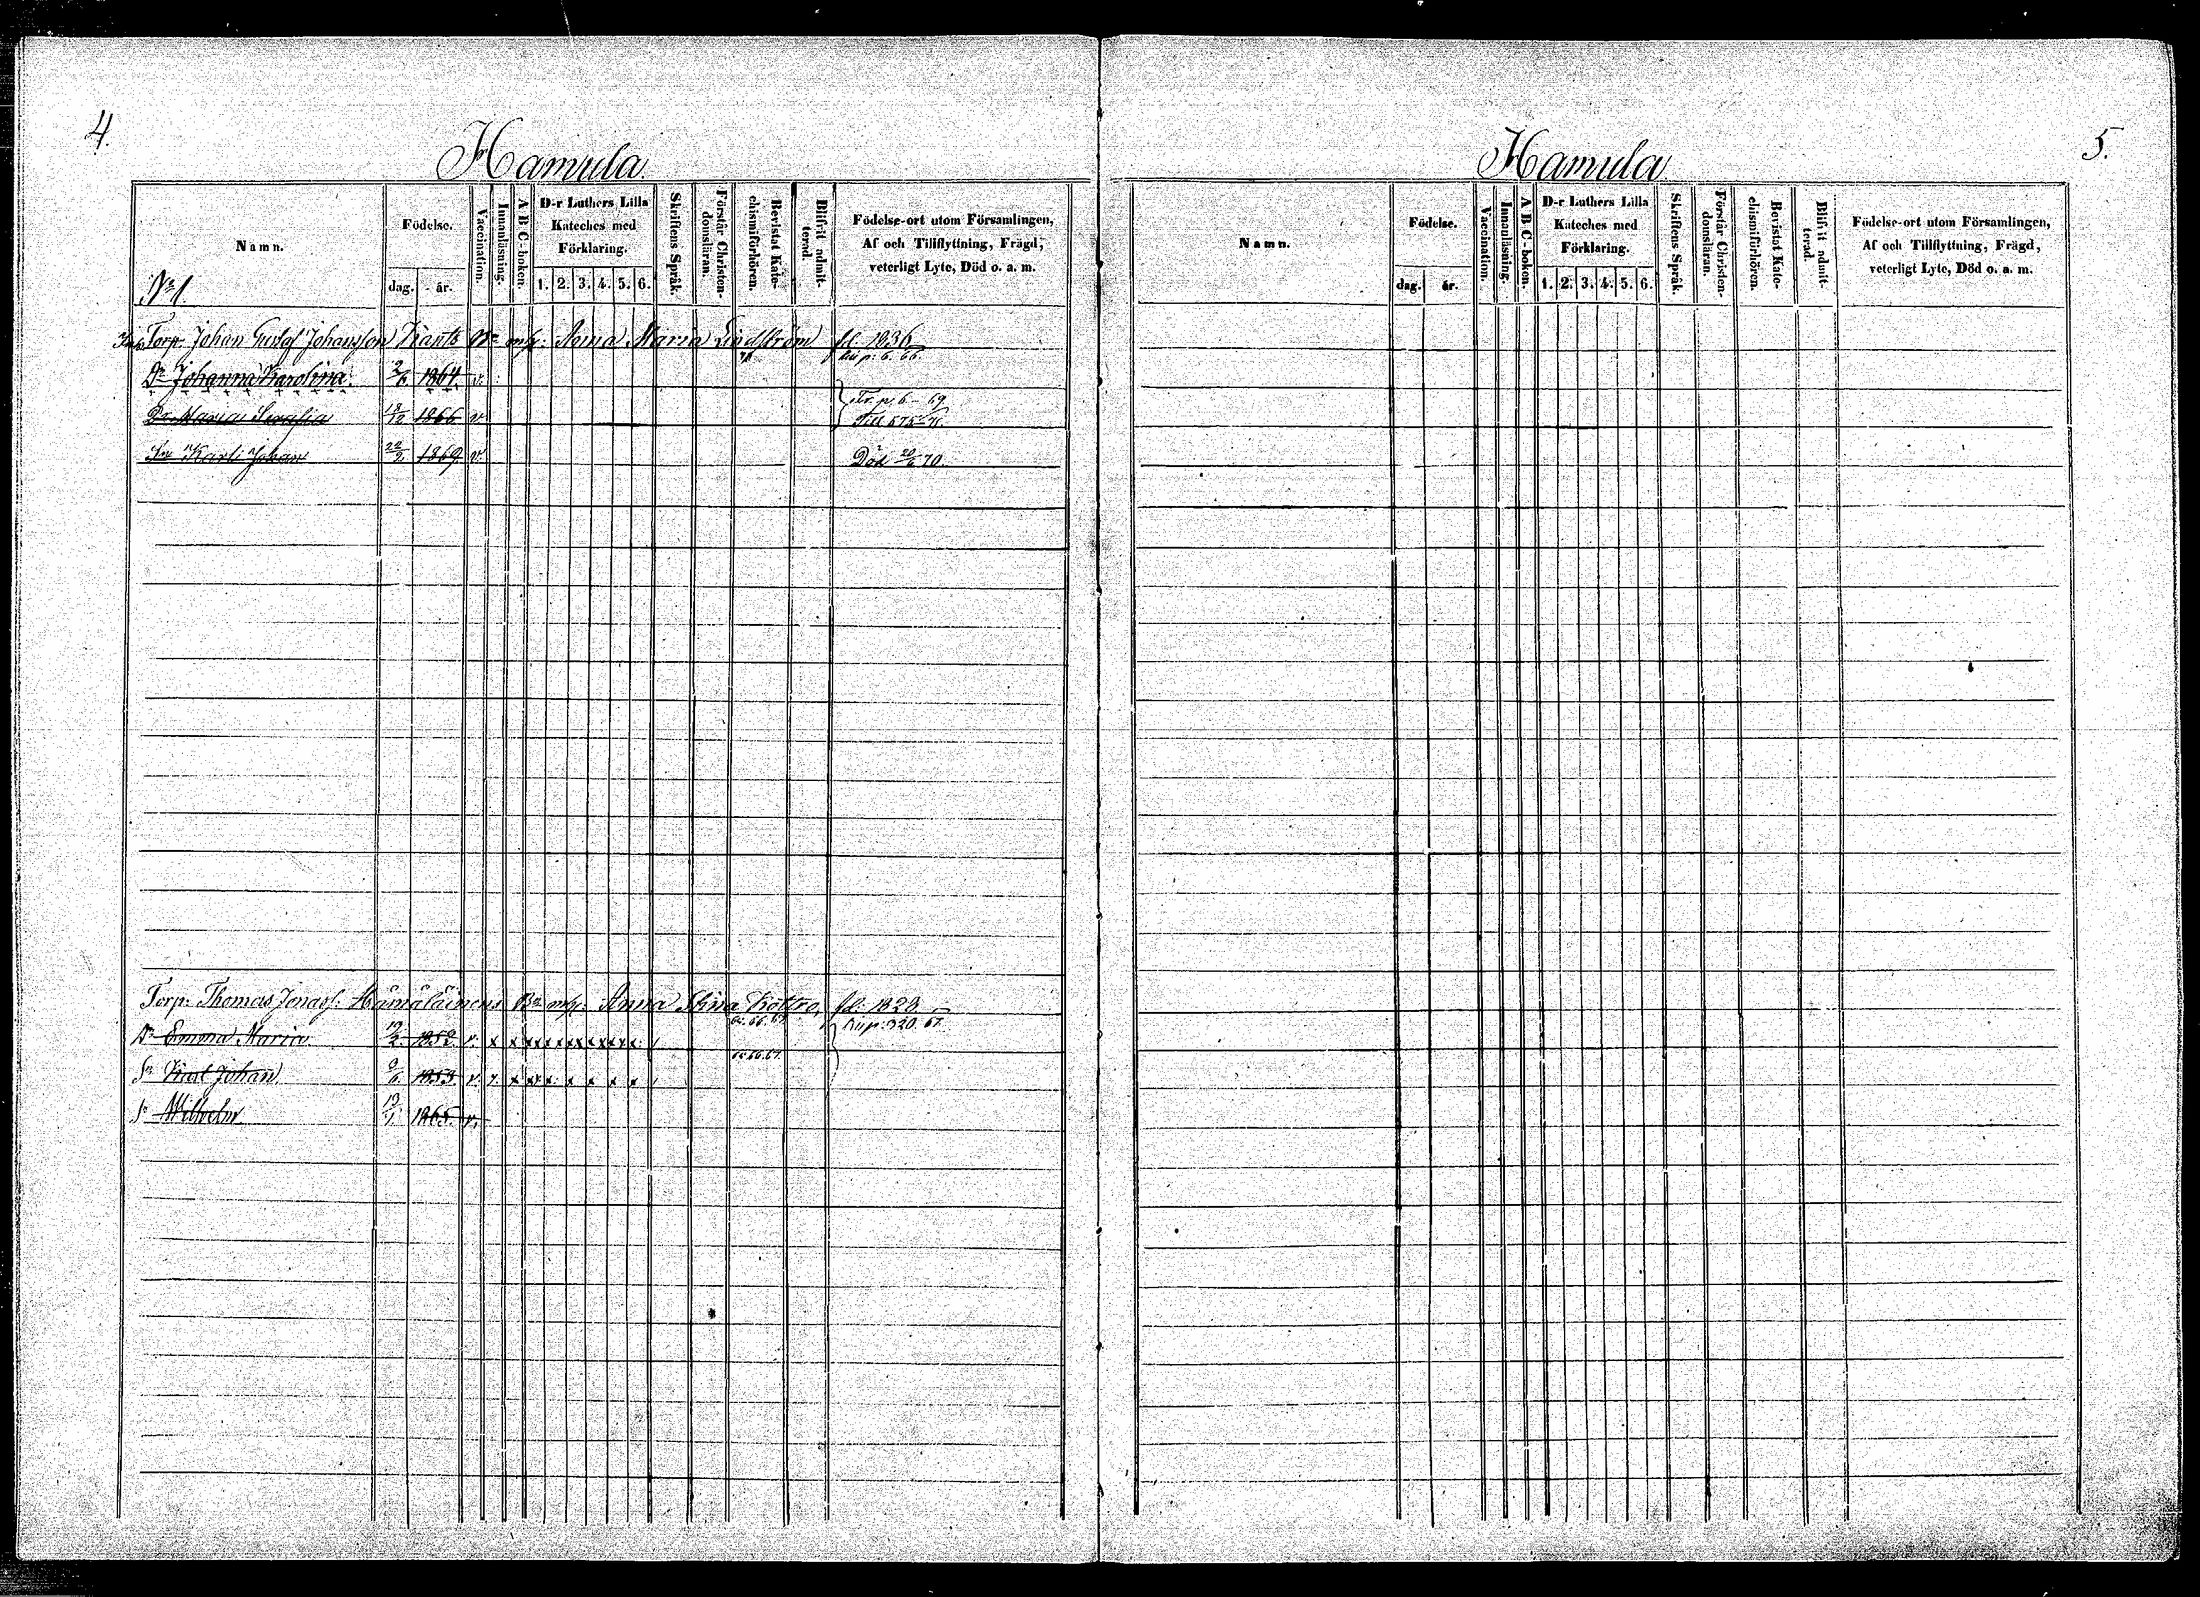 4.
Hamula
Namn.
Födelse.
dag.
år.
Vaccination.
Innanläsning.
A B C-boken.
D-r Luthers Lilla
Kateches med
Förklaring.
1. 2. 3. 4. 5. 6.
Skriftens Språk.
Förstår Christen-
domsläran.
Bevistat Kate-
chismiförhören.
Blifvit admit-
terad.
Födelse-ort utom Församlingen,
Af och Tillflyttning, Frägd,
veterligt Lyte, Död o. a. m.
No 1.
Torp. Johan Gustaf Johansson Krants Bn m/h: Anna Maria Lindström fd. 1836
Kup: 6. 66.
Dr Johanna Karolina. 2/6 1864. v.
Dr Maria Serafia 18/12 1866 v. Fr. p. 6-69
Till 575-71.
Sn Karl Johan 22/2 1869. v. Död 20/6 70.
Torp: Thomas Jonass: Hämäläinens Bn m/h: Anna Stina Kottro, fd: 1828.
66. 67. Kup: 320. 67.
Dr Emma Maria. 19/2 1852. v. x x x x x x x x x x x x
66. 67.
Sn Karl Johan 9/6 1853 v. x. x x x x x x x x
Sn Wilhelm 19/1 1865. v.
5.
Hamula
Namn.
Födelse.
dag.
år.
Vaccination.
Innanläsning.
A B C-boken.
D-r Luthers Lilla
Kateches med
Förklaring.
1. 2. 3. 4. 5. 6.
Skriftens Språk.
Förstår Christen-
domsläran.
Bevistat Kate-
chismiförhören.
Blifvit admit-
terad.
Födelse-ort utom Församlingen,
Af och Tillflyttning, Frägd,
veterligt Lyte, Död o. a. m.